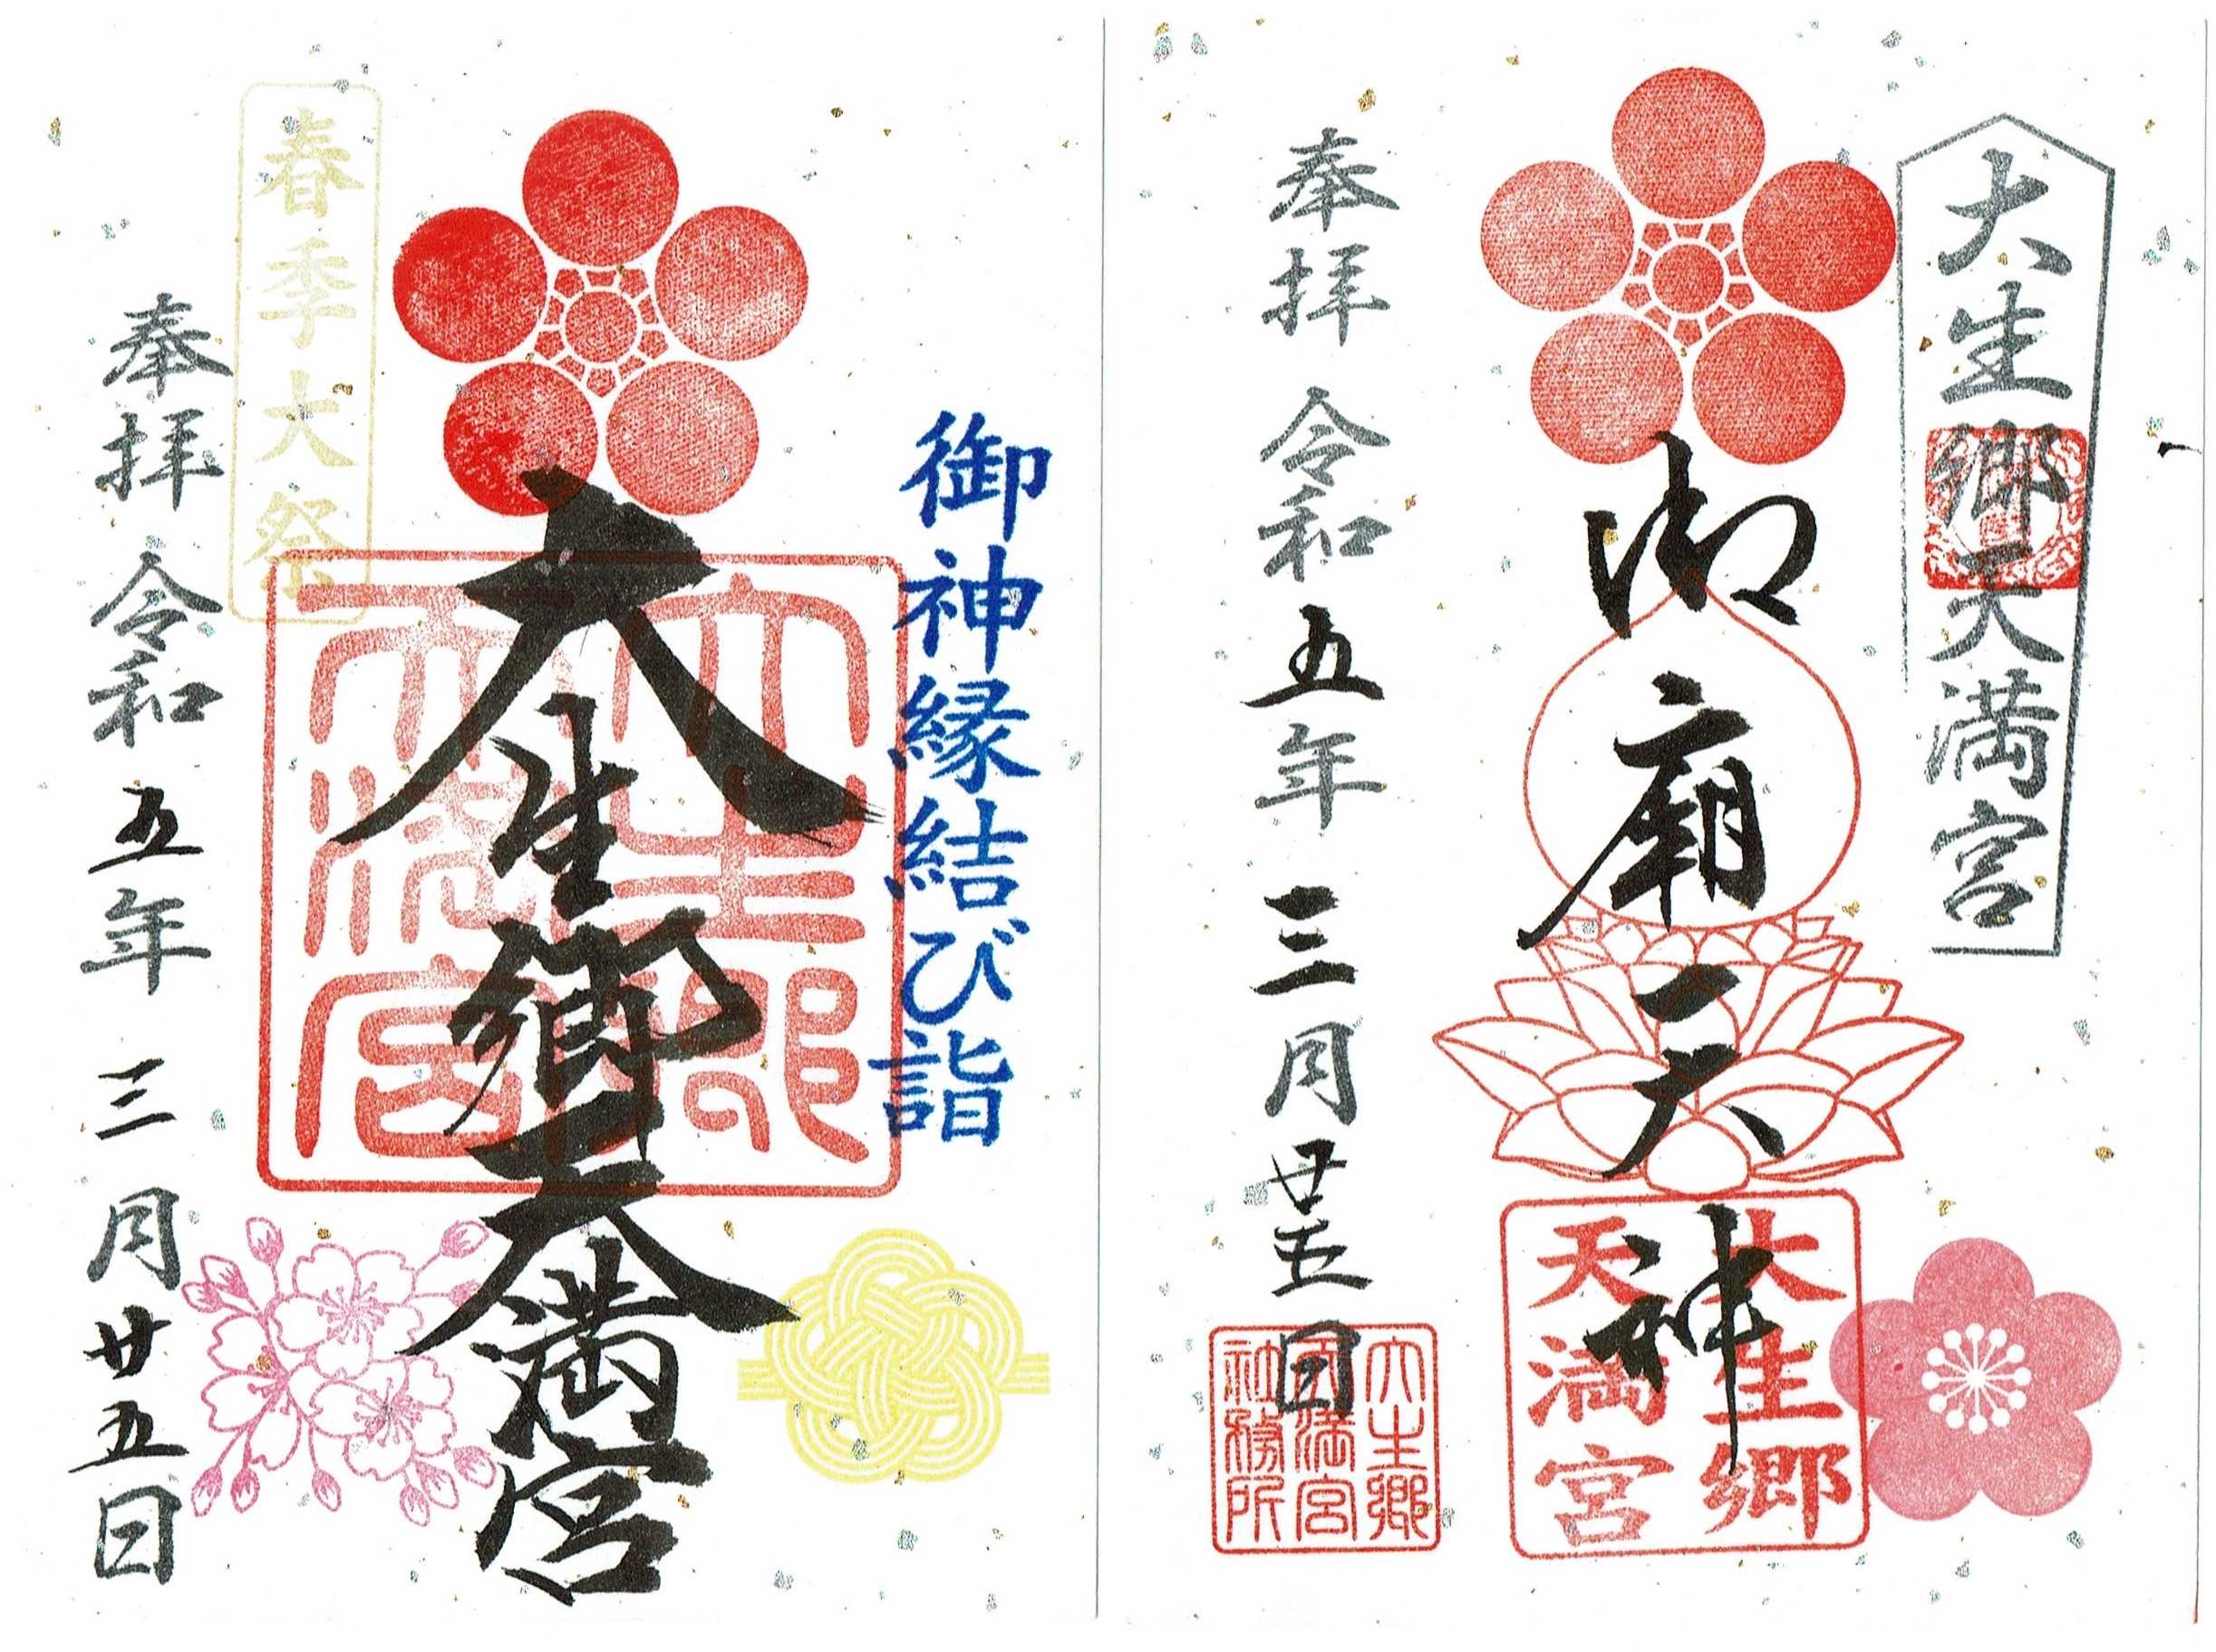 大生郷天満宮
御廟天神
大生郷
天満宮
奉拝 令和五年三月廿五日
大生郷
天満宮
社務所
御神縁結び詣
大生郷天満宮
大生郷
天満宮
春季大祭
奉拝 令和五年三月廿五日